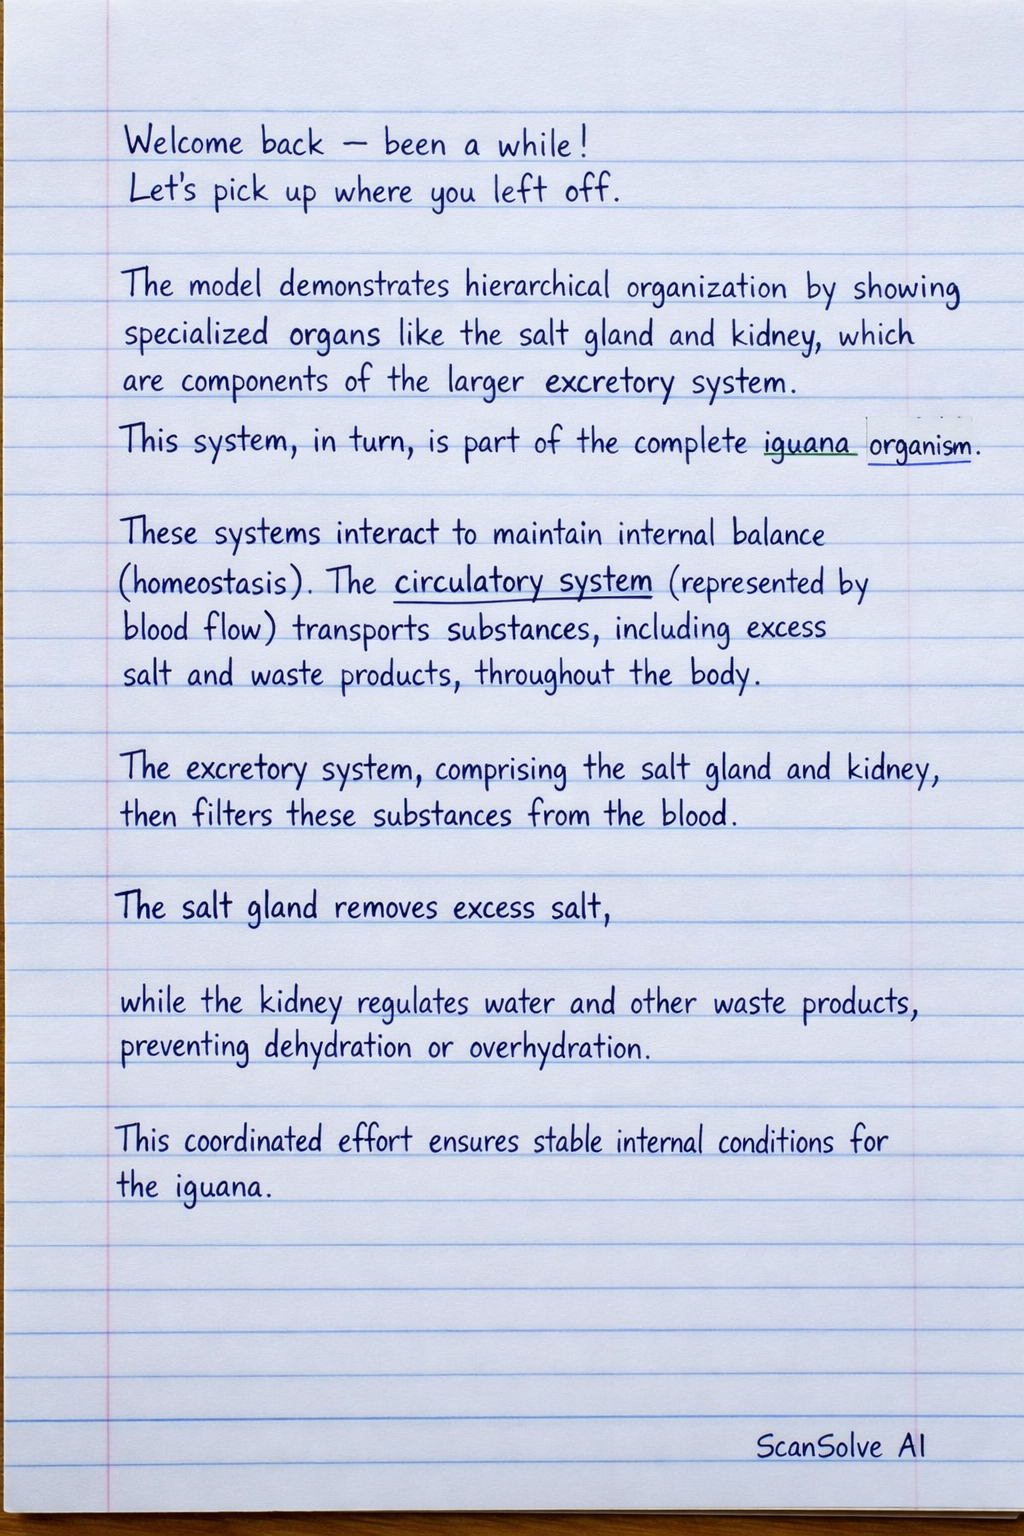 Welcome back — been a while!
Let's pick up where you left off.
The model demonstrates hierarchical organization by showing
specialized organs like the salt gland and kidney, which
are components of the larger excretory system.
This system, in turn, is part of the complete iguana organism.
These systems interact to maintain internal balance
(homeostasis). The circulatory system (represented by
blood flow) transports substances, including excess
salt and waste products, throughout the body.
The excretory system, comprising the salt gland and kidney,
then filters these substances from the blood.
The salt gland removes excess salt,
while the kidney regulates water and other waste products,
preventing dehydration or overhydration.
This coordinated effort ensures stable internal conditions for
the iguana.
ScanSolve AI